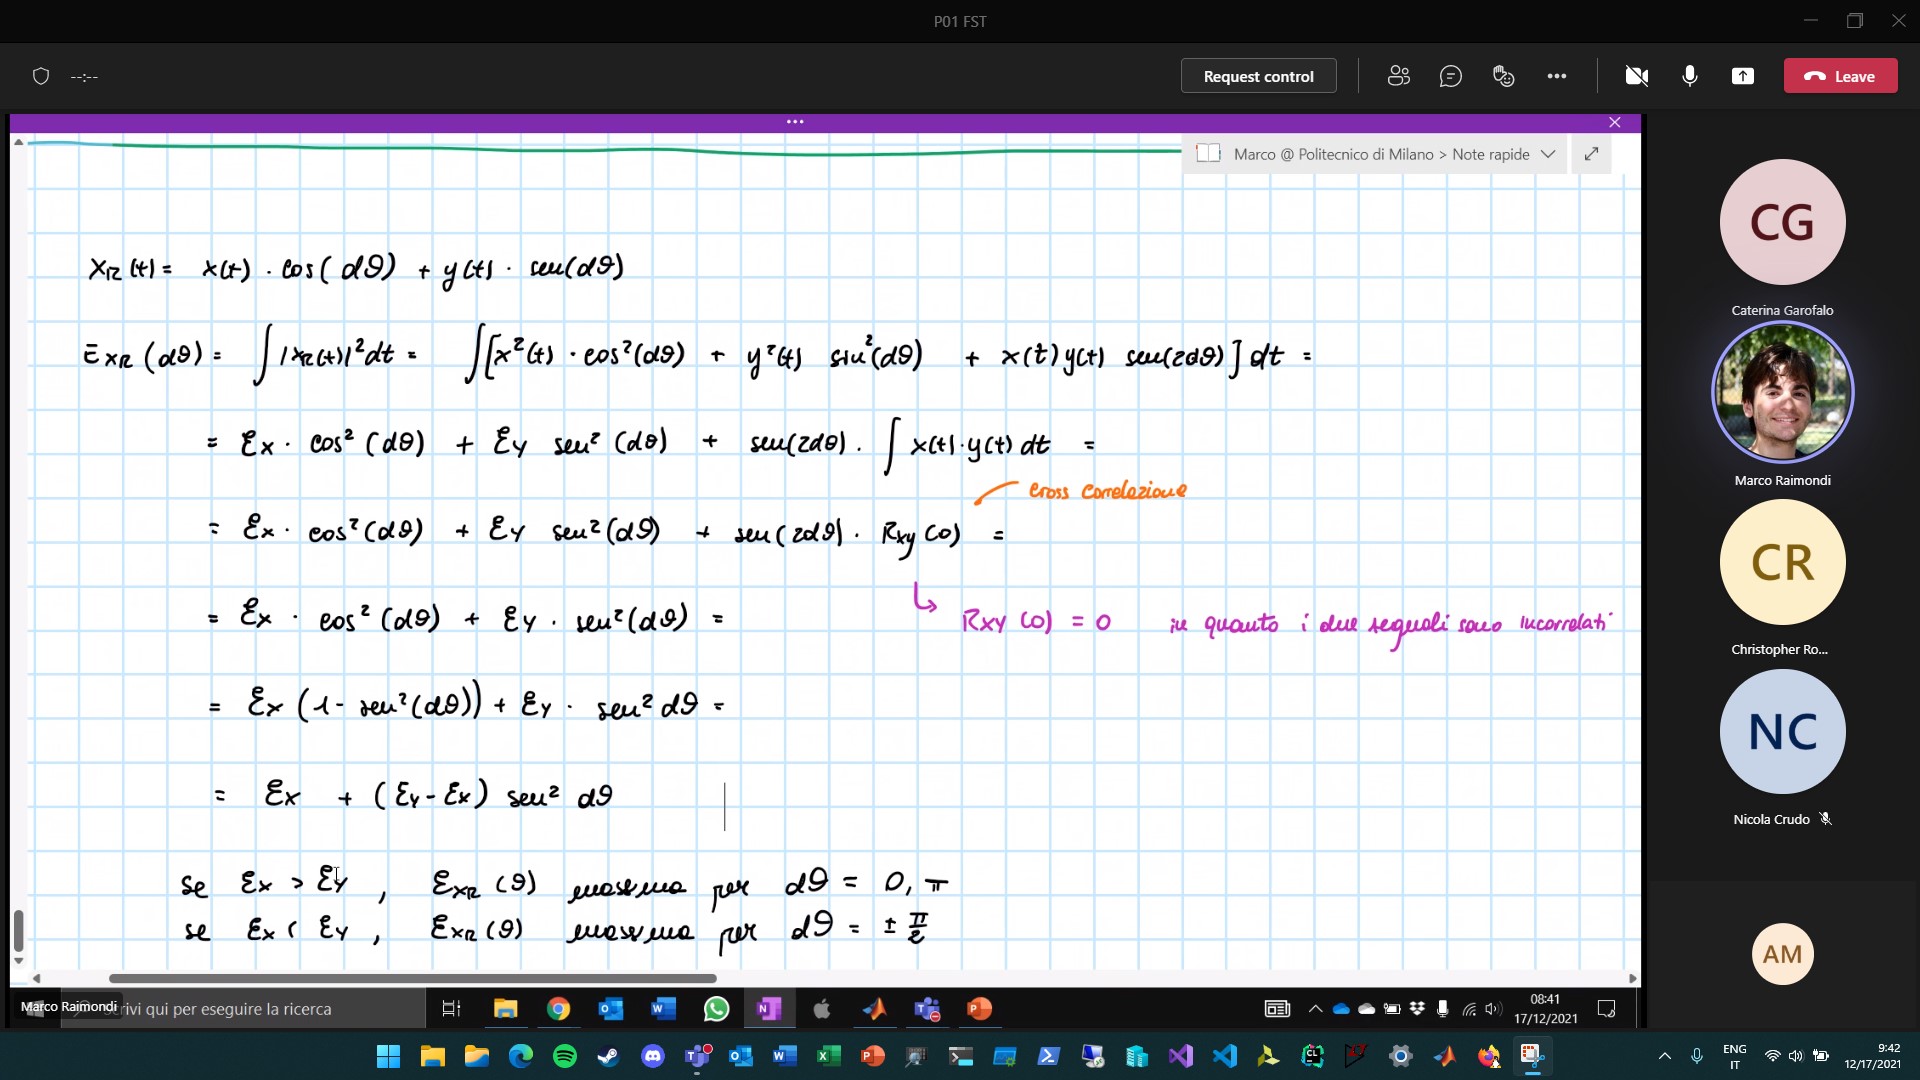 P01 FST
--:--
Request control
Leave
Marco @ Politecnico di Milano > Note rapide
x_R(t) = x(t) · cos(dϑ) + y(t) · sen(dϑ)
E_XR(dϑ) = ∫|x_R(t)|² dt = ∫[x²(t) · cos²(dϑ) + y²(t) sin²(dϑ) + x(t) y(t) sen(2dϑ)] dt =
= Ex · cos²(dϑ) + Ey sen²(dϑ) + sen(2dϑ) · ∫ x(t) · y(t) dt =
cross correlazione
= Ex · cos²(dϑ) + Ey sen²(dϑ) + sen(2dϑ) · Rxy(0) =
= Ex · cos²(dϑ) + Ey · sen²(dϑ) =
↳ Rxy(0) = 0 in quanto i due segnali sono incorrelati
= Ex (1 - sen²(dϑ)) + Ey · sen² dϑ =
= Ex + (Ey - Ex) sen² dϑ
se Ex > Ey, E_XR(ϑ) massima per dϑ = 0, π
se Ex < Ey, E_XR(ϑ) massima per dϑ = ± π/2
CG
Caterina Garofalo
Marco Raimondi
CR
Christopher Ro...
NC
Nicola Crudo
AM
Marco Raimondi
crivi qui per eseguire la ricerca
08:41
17/12/2021
ENG
IT
9:42
12/17/2021